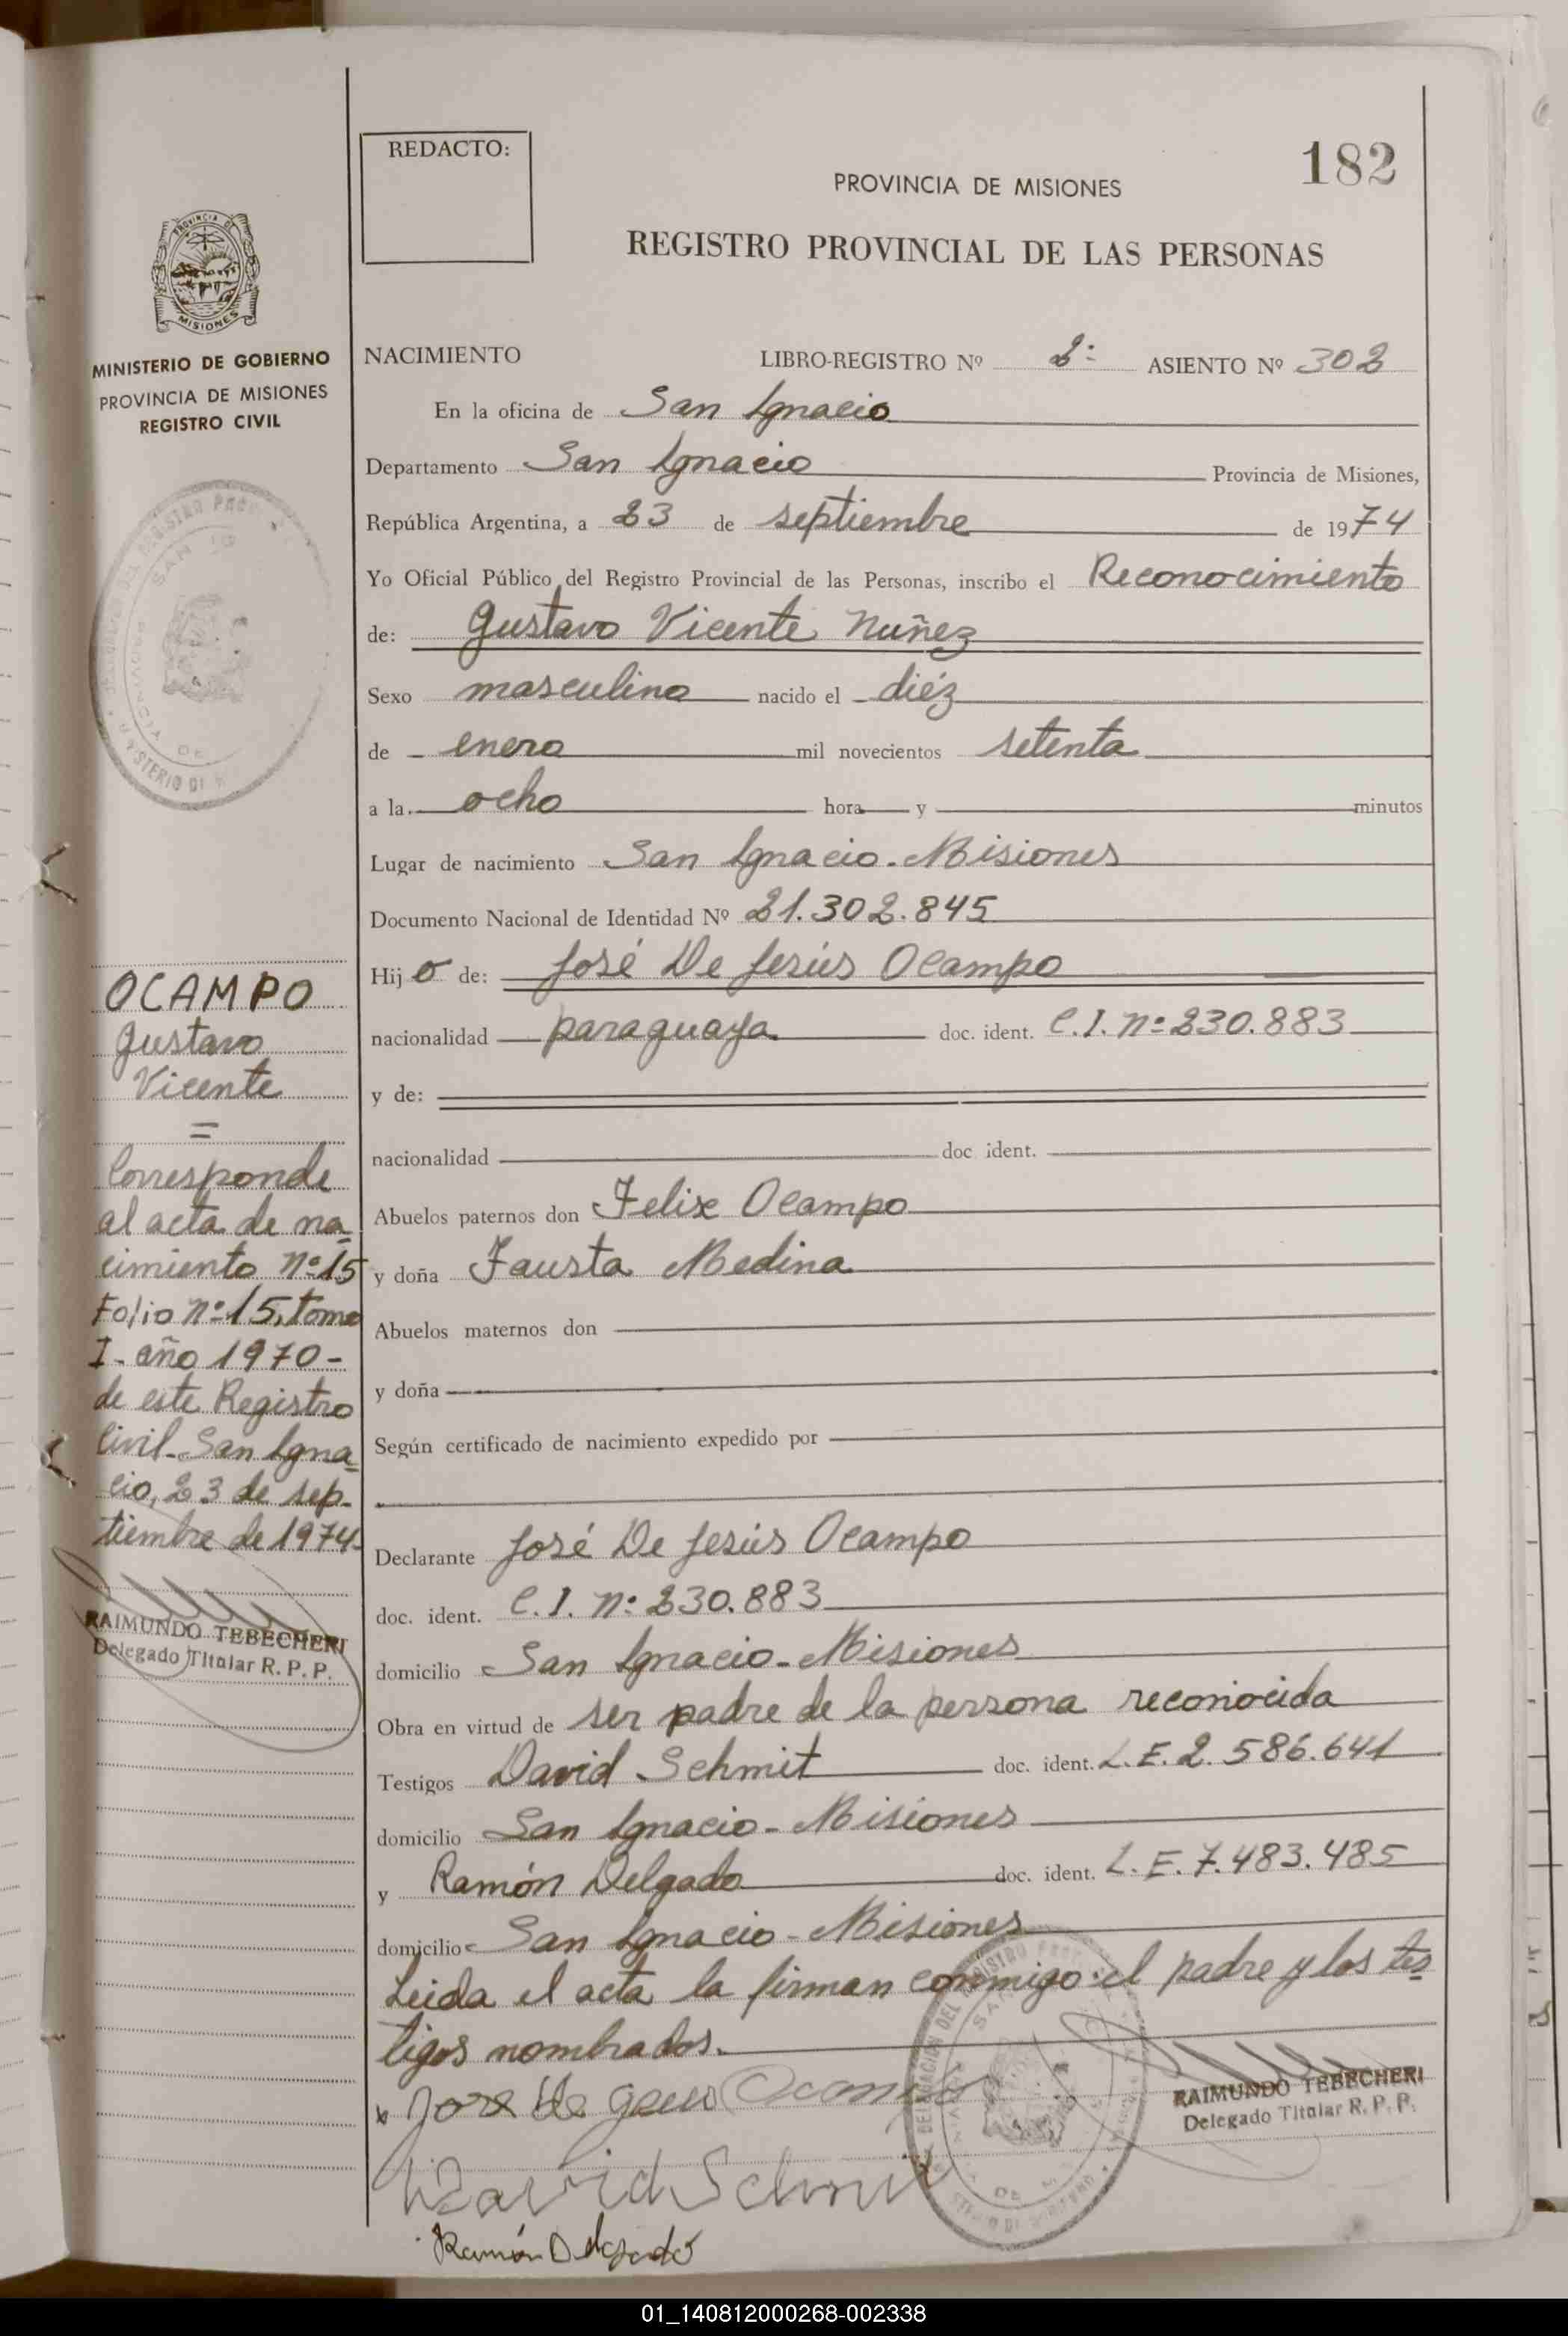 REDACTO:
182
PROVINCIA DE MISIONES
REGISTRO PROVINCIAL DE LAS PERSONAS
MISIONES
MINISTERIO DE GOBIERNO
PROVINCIA DE MISIONES
REGISTRO CIVIL
NACIMIENTO LIBRO-REGISTRO Nº 2º ASIENTO Nº 302
En la oficina de San Ignacio
Departamento San Ignacio Provincia de Misiones,
República Argentina, a 23 de septiembre de 1974
Yo Oficial Público del Registro Provincial de las Personas, inscribo el Reconocimiento
de: Gustavo Vicente Nuñez
Sexo masculino nacido el diéz
de enero mil novecientos setenta
a la ocho hora y minutos
Lugar de nacimiento San Ignacio - Misiones
Documento Nacional de Identidad Nº 21.302.845
Hijo de: José De Jesús Ocampo
nacionalidad paraguaya doc. ident. C.I. nº 230.883
y de:
nacionalidad doc ident.
Abuelos paternos don Felix Ocampo
y doña Fausta Medina
Abuelos maternos don
y doña
Según certificado de nacimiento expedido por
Declarante José De Jesús Ocampo
doc. ident. C.I. nº 230.883
domicilio San Ignacio - Misiones
Obra en virtud de ser padre de la persona reconocida
Testigos David Schmit doc. ident. L.E. 2.586.641
domicilio San Ignacio - Misiones
y Ramón Delgado doc. ident. L.E. 7.483.485
domicilio San Ignacio - Misiones
Leida el acta la firman conmigo el padre y los tes
tigos nombrados.
OCAMPO
Gustavo
Vicente
=
Corresponde
al acta de na
cimiento nº 15
Folio nº 15, tomo
I - año 1970 -
de este Registro
Civil - San Igna
cio, 23 de sep-
tiembre de 1974
RAIMUNDO TEBECHERI
Delegado Titular R. P. P.
RAIMUNDO TEBECHERI
Delegado Titular R. P. P.
David Schmit
Ramón Delgado
01_140812000268-002338